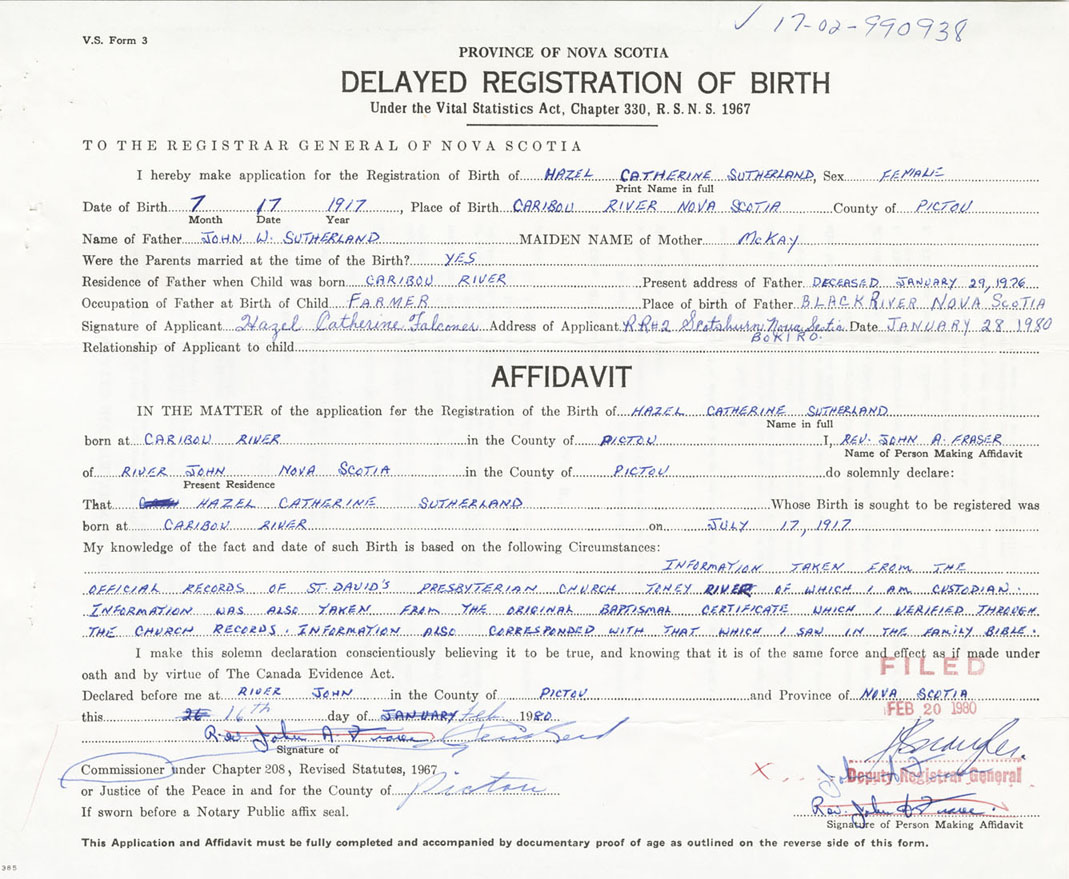 ✓ 17-02-990938
V.S. Form 3
PROVINCE OF NOVA SCOTIA
DELAYED REGISTRATION OF BIRTH
Under the Vital Statistics Act, Chapter 330, R. S. N. S. 1967
TO THE REGISTRAR GENERAL OF NOVA SCOTIA
I hereby make application for the Registration of Birth of HAZEL CATHERINE SUTHERLAND, Sex FEMALE
Print Name in full
Date of Birth 7 17 1917, Place of Birth CARIBOU RIVER NOVA SCOTIA County of PICTOU
Month Date Year
Name of Father JOHN W. SUTHERLAND MAIDEN NAME of Mother McKAY
Were the Parents married at the time of the Birth? YES
Residence of Father when Child was born CARIBOU RIVER Present address of Father DECEASED JANUARY 29, 1976
Occupation of Father at Birth of Child FARMER Place of birth of Father BLACK RIVER NOVA SCOTIA
Signature of Applicant Hazel Catherine Falconer Address of Applicant RR#2 Scotsburn Nova Scotia Date JANUARY 28 1980
BOK1RO.
Relationship of Applicant to child
AFFIDAVIT
IN THE MATTER of the application for the Registration of the Birth of HAZEL CATHERINE SUTHERLAND
Name in full
born at CARIBOU RIVER in the County of PICTOU I, REV. JOHN A. FRASER
Name of Person Making Affidavit
of RIVER JOHN NOVA SCOTIA in the County of PICTOU do solemnly declare:
Present Residence
That HAZEL CATHERINE SUTHERLAND Whose Birth is sought to be registered was
born at CARIBOU RIVER on JULY 17, 1917
My knowledge of the fact and date of such Birth is based on the following Circumstances:
INFORMATION TAKEN FROM THE
OFFICIAL RECORDS OF ST. DAVID'S PRESBYTERIAN CHURCH TONEY RIVER OF WHICH I AM CUSTODIAN.
INFORMATION WAS ALSO TAKEN FROM THE ORIGINAL BAPTISMAL CERTIFICATE WHICH I VERIFIED THROUGH
THE CHURCH RECORDS. INFORMATION ALSO CORRESPONDED WITH THAT WHICH I SAW IN THE FAMILY BIBLE.
I make this solemn declaration conscientiously believing it to be true, and knowing that it is of the same force and effect as if made under
oath and by virtue of The Canada Evidence Act.
FILED
Declared before me at RIVER JOHN in the County of PICTOU and Province of NOVA SCOTIA
FEB 20 1980
this 16th day of JANUARY Feb 1980
Rev. John A. Fraser
Signature of
Commissioner under Chapter 208, Revised Statutes, 1967
X
Deputy Registrar General
or Justice of the Peace in and for the County of Pictou
Rev. John A. Fraser
If sworn before a Notary Public affix seal.
Signature of Person Making Affidavit
This Application and Affidavit must be fully completed and accompanied by documentary proof of age as outlined on the reverse side of this form.
385